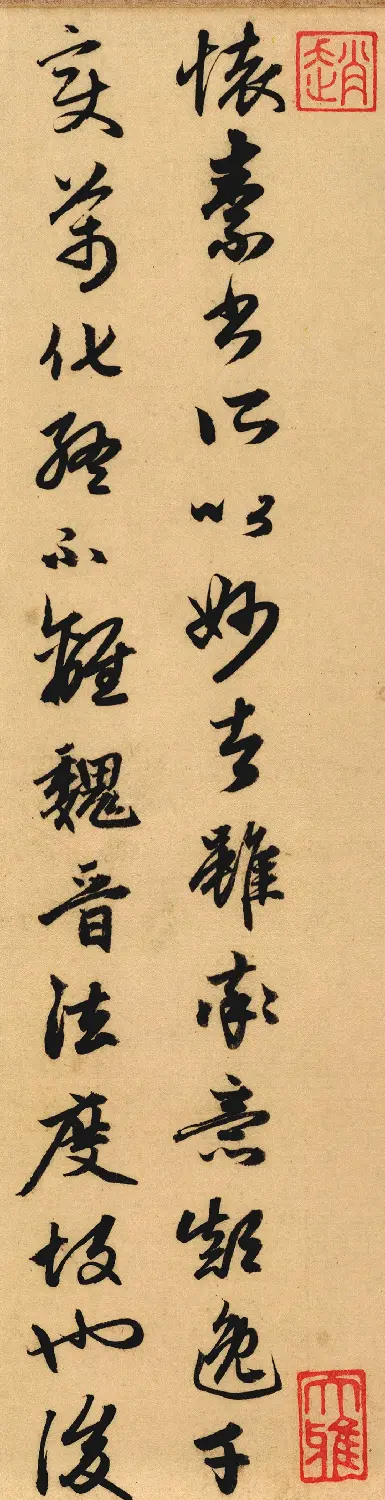 趙
大雅
懷素書所以妙者雖率意顛逸千
變萬化終不離魏晉法度故也後